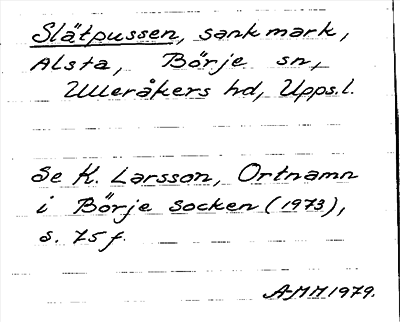 Slätpussen, sank mark,
Alsta, Börje sn,
Ulleråkers hd, Upps.l.
Se K. Larsson, Ortnamn
i Börje socken (1973),
s. 75 f.
AMM 1979.